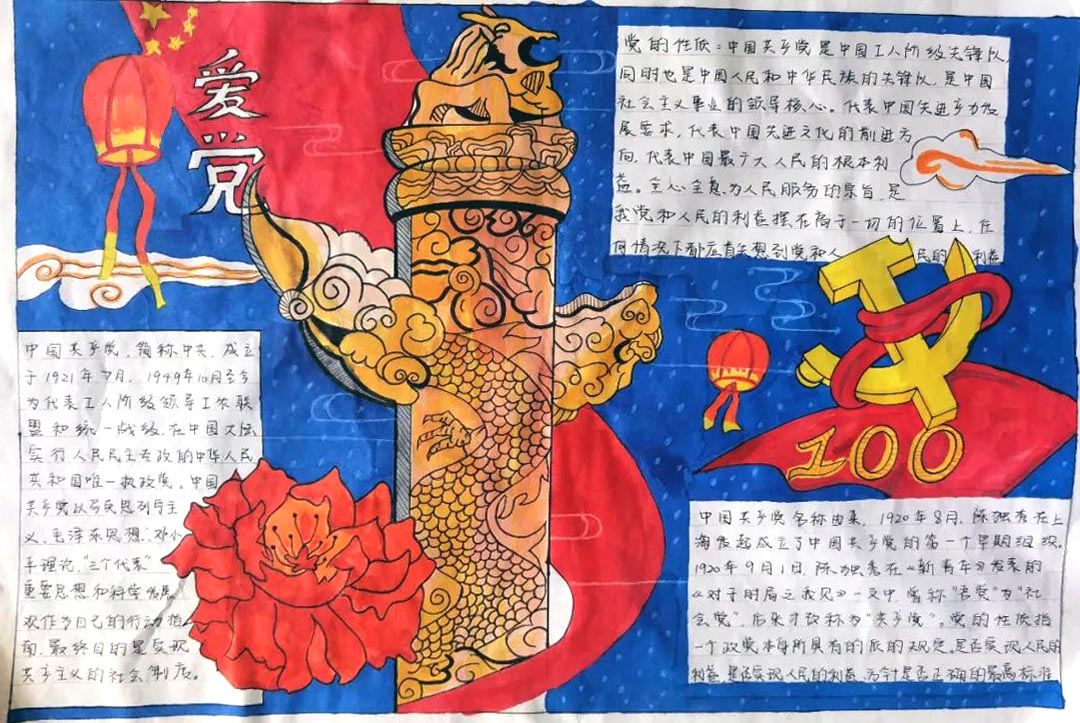 爱
党
党的性质：中国共产党是中国工人阶级先锋队
同时也是中国人民和中华民族的先锋队，是中国
社会主义事业的领导核心。代表中国先进产力发
展要求，代表中国先进文化的前进方
向，代表中国最广大人民的根本利
益。全心全意为人民服务的宗旨，是
我党和人民的利益摆在高于一切的位置上，在
何情况下都应首先想到党和人民的利益
100
中国共产党，简称中共，成立
于1921年7月，1949年10月至今
为代表工人阶级领导工农联
盟和统一战线，在中国大陆
实行人民民主专政的中华人民
共和国唯一执政党。中国
共产党以马克思列宁主
义、毛泽东思想、邓小
平理论，"三个代表"
重要思想和科学发展
观作为自己的行动指
南，最终目的是实现
共产主义的社会制度。
中国共产党名称由来，1920年8月，陈独秀在上
海发起成立了中国共产党的第一个早期组织。
1920年9月1日，陈独秀在《新青年》发表的
《对于时局之我见》一文中，曾称"吾党"为"社
会党"，后来才改称为"共产党"。党的性质指
一个政党本身所具有的质的规定，是否实现人民的
利益，是否实现人民的利益，为针是否正确的最高标准